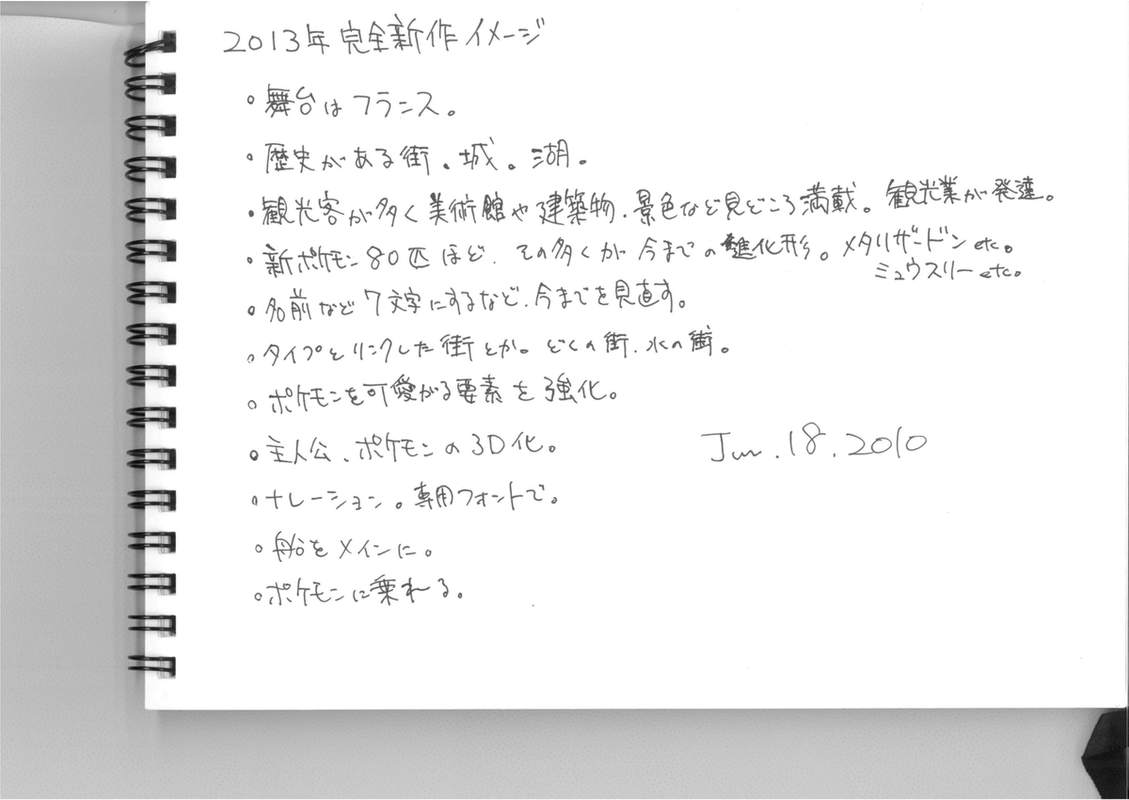 2013年 完全新作イメージ
・舞台はフランス。
・歴史がある街。城。湖。
・観光客が多く美術館や建築物、景色など見どころ満載。観光業が発達。
・新ポケモン80匹ほど、その多くが今までの進化形。メタリザードンetc。
ミュウスリーetc。
・名前など7文字にするなど、今までを見直す。
・タイプとリンクした街とか。どくの街、水の街。
・ポケモンを可愛がる要素を強化。
・主人公、ポケモンの3D化。
Jun.18.2010
・ナレーション。専用フォントで。
・船をメインに。
・ポケモンに乗れる。